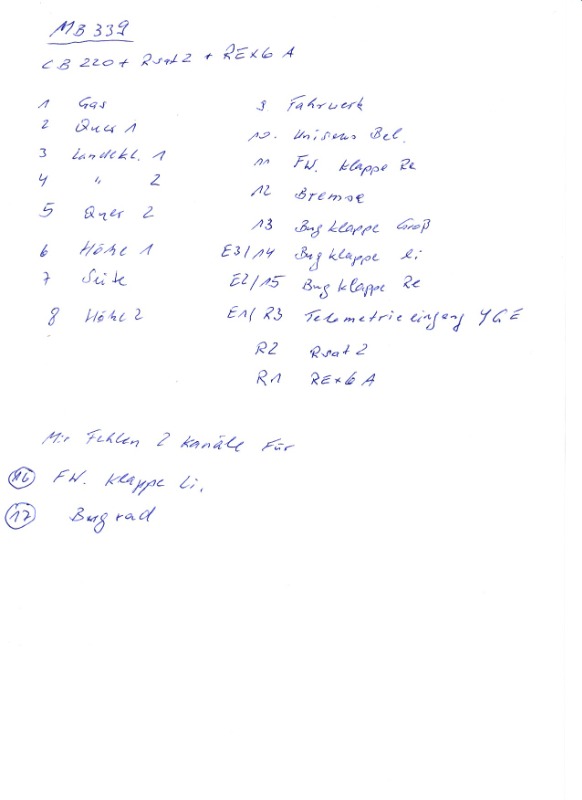 MB 339
CB 220 + Rsat 2 + REX 6 A
1 Gas
2 Quer 1
3 Landekl. 1
4 " 2
5 Quer 2
6 Höhe 1
7 Seite
8 Höhe 2
9 Fahrwerk
10. Unisens Bel.
11 FW. Klappe Re
12 Bremse
13 Bugklappe Groß
E3/14 Bugklappe li
E2/15 Bugklappe Re
E1/R3 Telemetrieeingang YGE
R2 Rsat 2
R1 REX 6 A
Mir Fehlen 2 Kanäle Für
16 FW. Klappe Li.
17 Bugrad